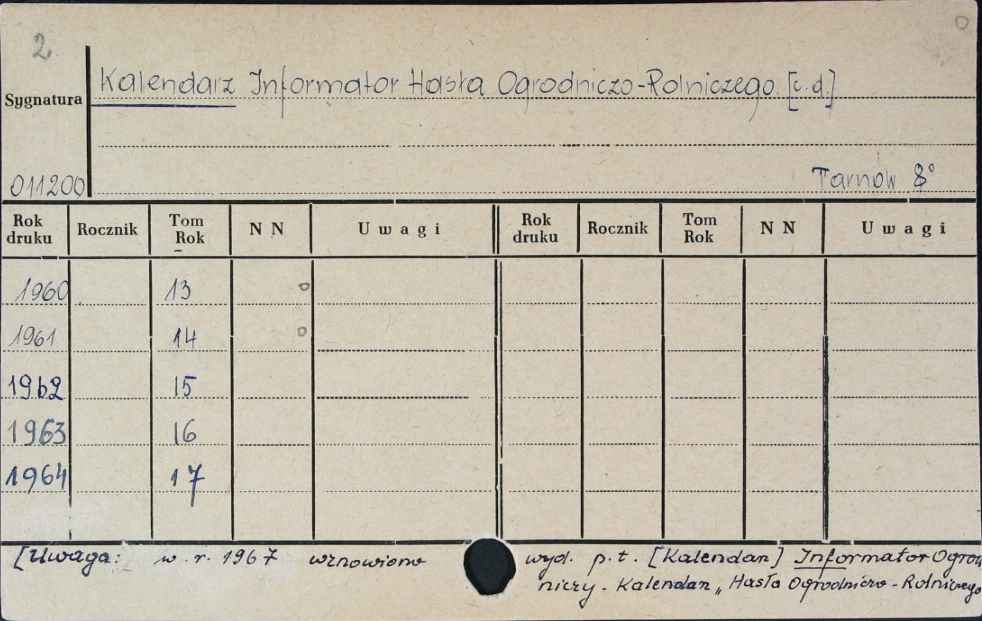 2.
Kalendarz Informator Hasła Ogrodniczo-Rolniczego [c.d.]
Sygnatura
011200 Tarnów 8°
Rok druku Rocznik Tom Rok N N Uwagi Rok druku Rocznik Tom Rok N N Uwagi
1960 13
1961 14
1962 15
1963 16
1964 17
[Uwaga: w r. 1967 wznowiono wyd. p.t. [Kalendarz] Informator Ogrod
niczy. Kalendarz „Hasła Ogrodniczo-Rolniczego